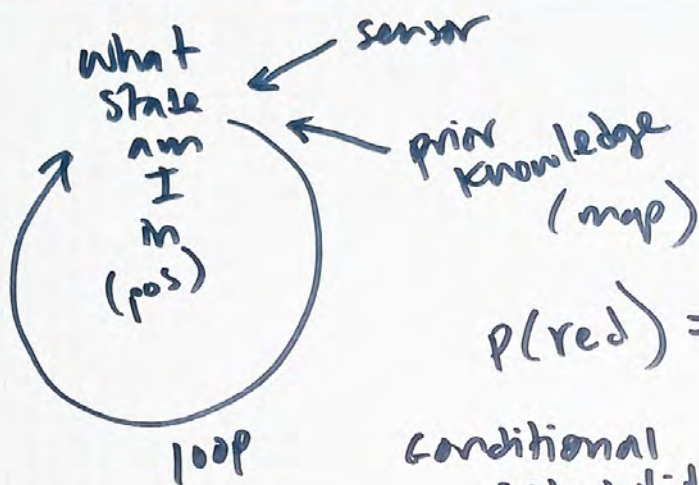 what
state
am
I
in
(pos)
sensor
prior
knowledge
(map)
loop
p(red) =
conditional